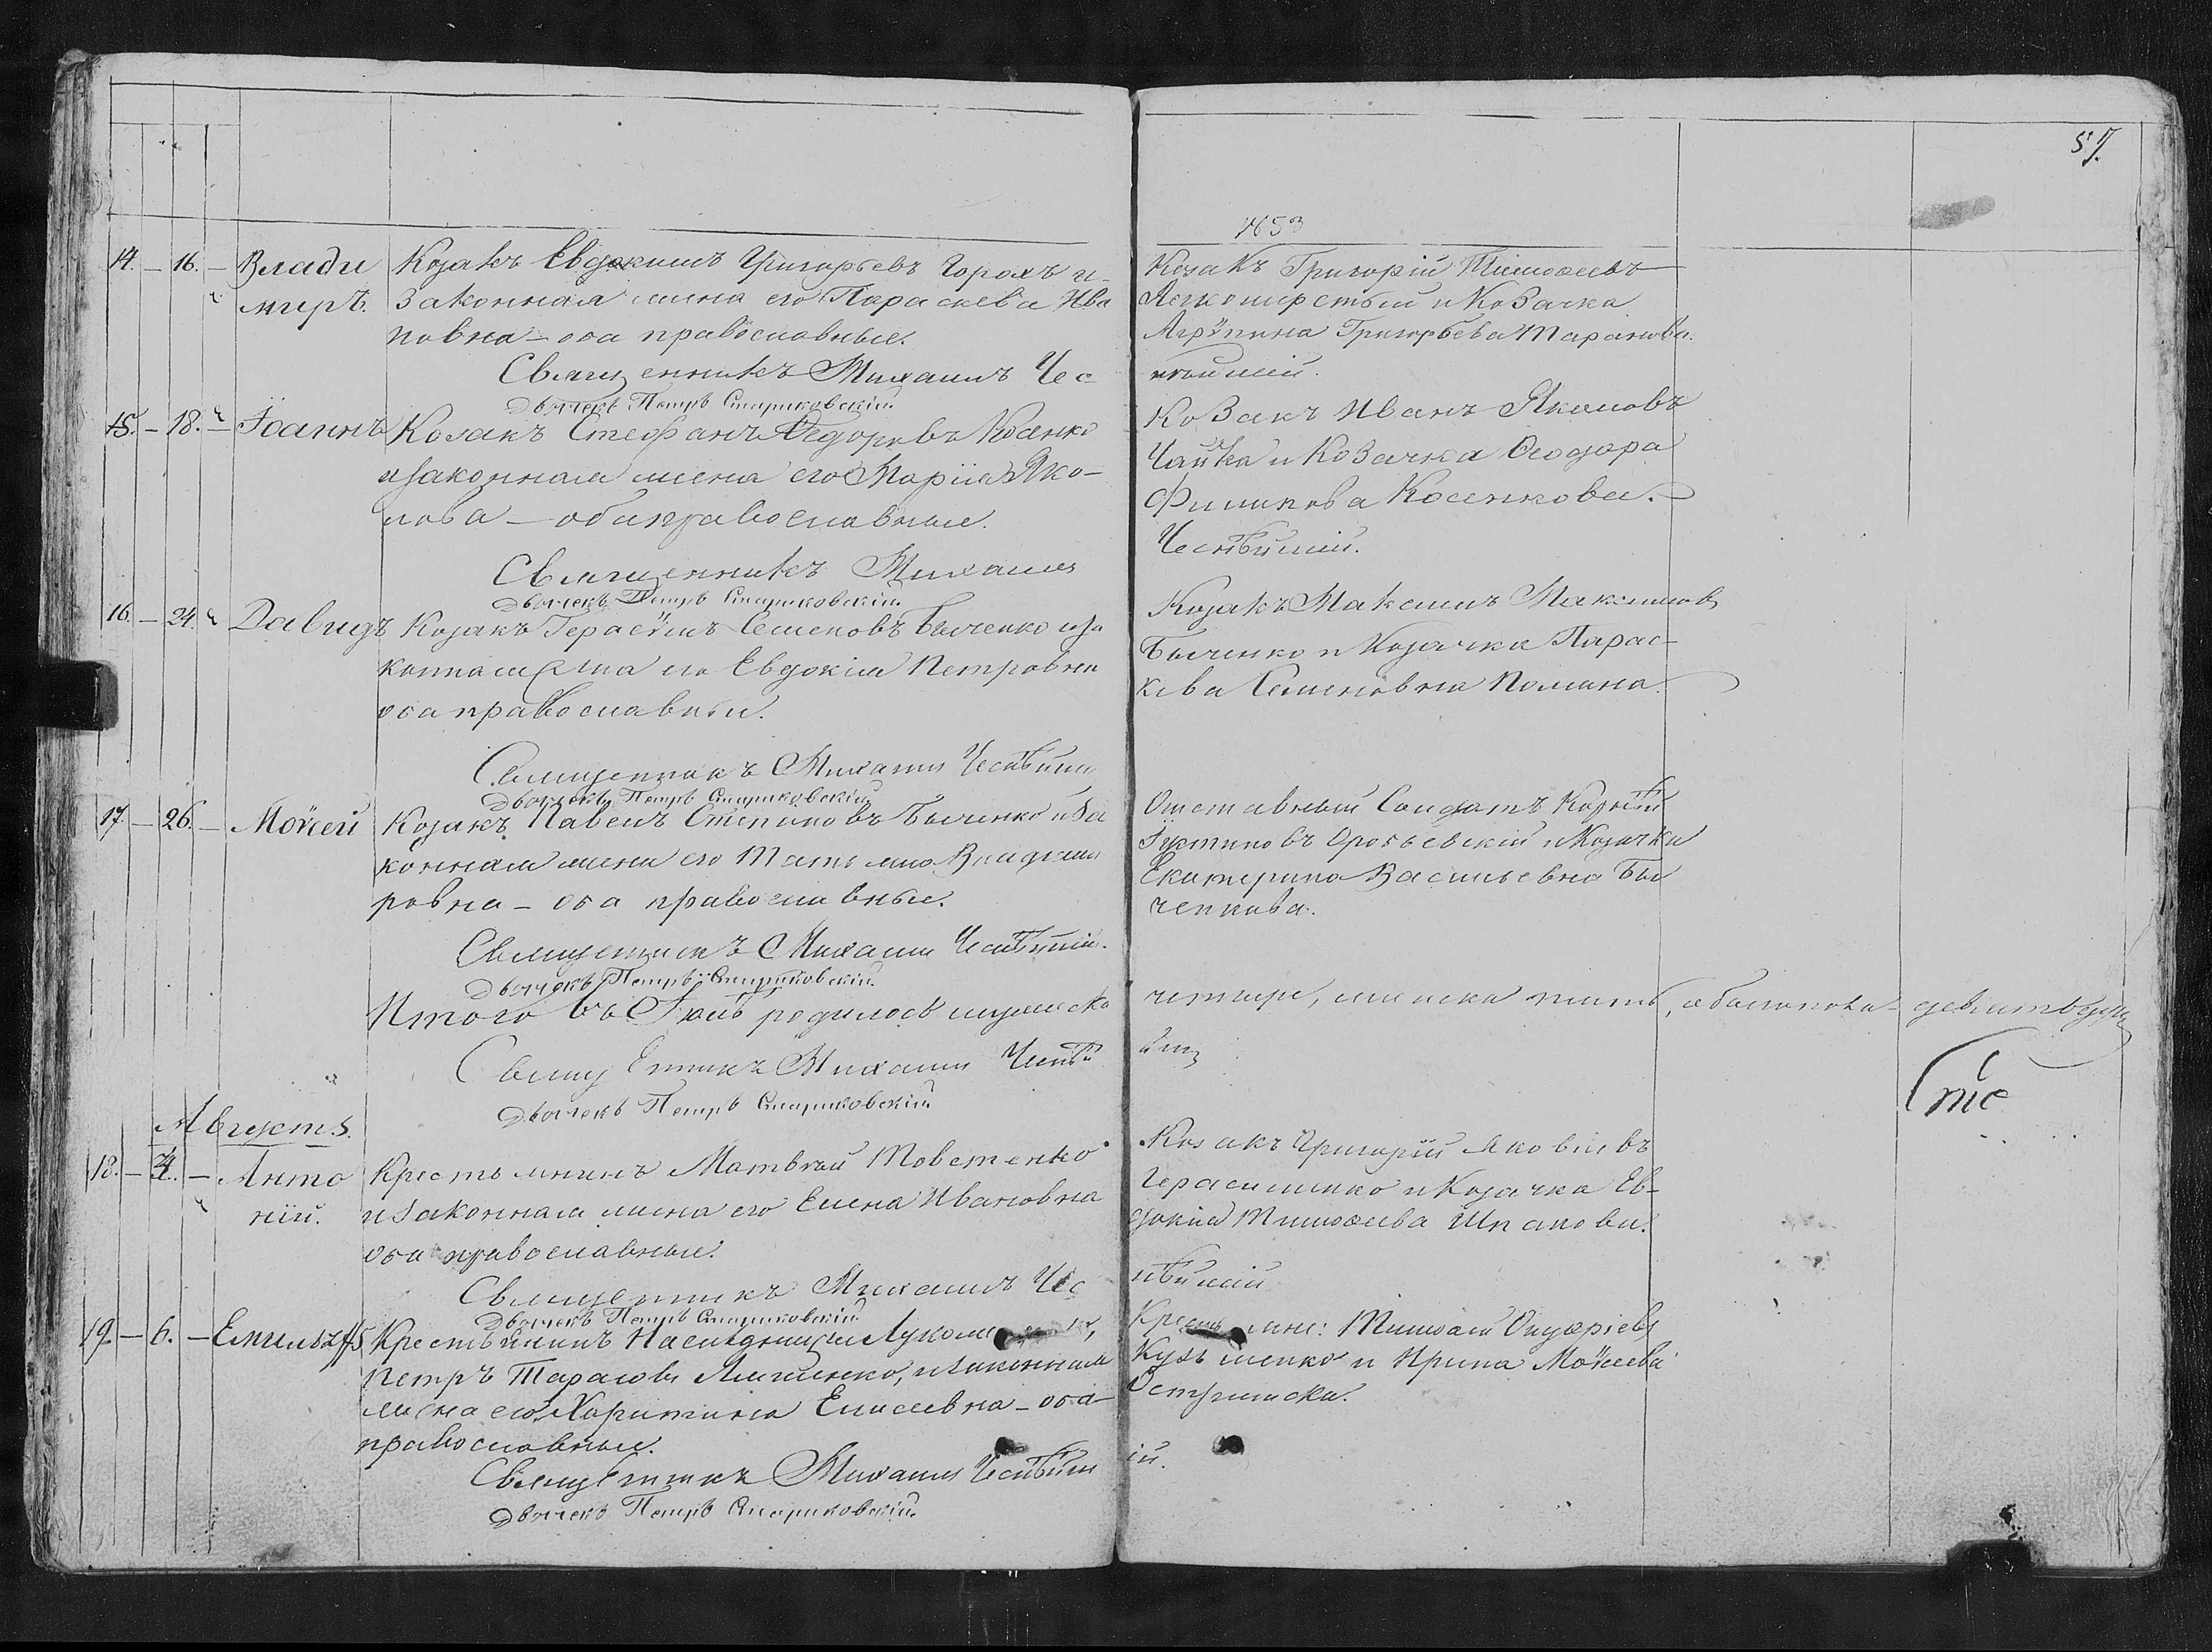 57.
1853
14. – 16. – Влади
миръ.
Козакъ Евдокимъ Григорьевъ Горохъ и
законная жена его Параскева Ива
новна – оба православные.
Священникъ Михаилъ Чес
Дьячекъ Петръ Стариковскій
Козакъ Григорій Тимоѳеевъ
и Козачка
Агрипина Григорьева Таранова.
нѣйшій.
15. – 18. – Іоаннъ
Козакъ Стефанъ Ѳедоровъ Косенко
и законная жена его Марія Яко-
лова – оба православные.
Священникъ Михаилъ
Дьячекъ Петръ Стариковскій
Козакъ Иванъ Якимовъ
Чайка и Козачка Ѳеодора
Филипова Косенкова.
Честнѣйшій.
16. – 24. Давидъ
Козакъ Герасимъ Семеновъ Быченко и за
конная жена его Евдокія Петровна
оба православные.
Священникъ Михаилъ Честнѣйшій
Дьячекъ Петръ Стариковскій
Козакъ Максимъ Максимовъ
Быченко и Козачка Парас-
кева Семеновна
17. – 26. – Моѵсей
Козакъ Павелъ Степановъ Быченко и за
конная жена его Татьяна Владими
ровна – оба православные.
Священникъ Михаилъ Честнѣйшій.
Дьячекъ Петръ Стариковскій
Отставный Солдатъ Корнѣй
Іустиновъ и Козачка
Екатерина Васильевна Бы
ченкова.
Итого въ Іюлѣ родилось мужеска
четыре, женска пять, а обоего пола – девять душъ
Священникъ Михаилъ Честнѣ
йш
Дьячекъ Петръ Стариковскій
Августъ.
18. – 4. – Анто
ній.
Крестьянинъ Матвѣй Товстенко
и законная жена его Елена Ивановна
оба православные.
Священникъ Михаилъ Чес
Дьячекъ Петръ Стариковскій
Козакъ Григорій Яковлевъ
Герасименко и Козачка Ев-
докія Тимоѳеева Шпакова.
нѣйшій
19. – 6. – Емиліанъ
Крестьянинъ Наслѣдницы
Петръ Тарасовъ и законная
жена его Харитина Елисеевна – оба
православные.
Священникъ Михаилъ Честнѣйш
Дьячекъ Петръ Стариковскій
Крестьяне: Тимоѳей Онуфріевъ
Кузьменко и Ирина Моѵсеева
ій.